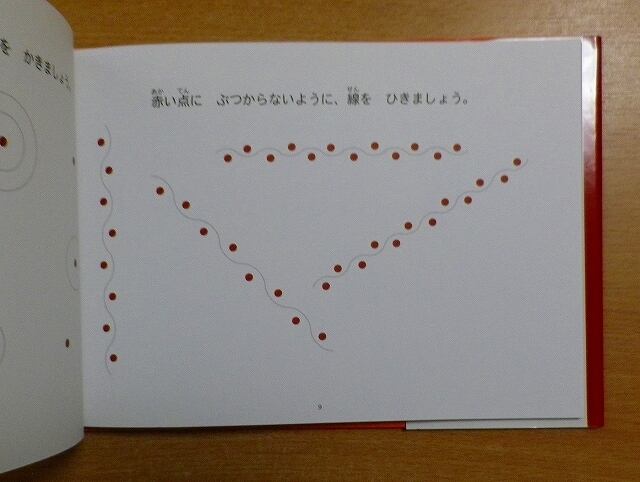 を かきましょう。
あか てん せん
赤い点に ぶつからないように、線を ひきましょう。
9